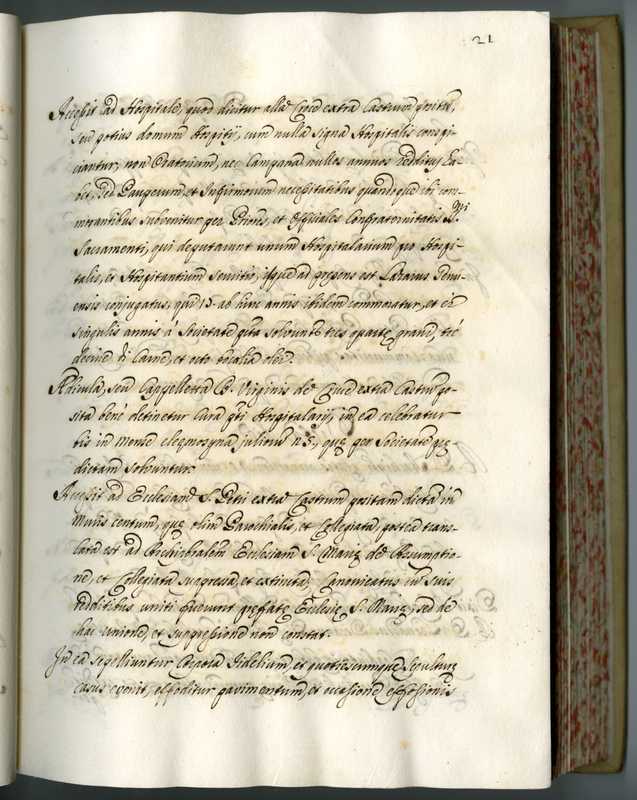 21
Accessit ad Hospitale, quod dicitur alla Croce extra Castrum positum,
seu potius domum Hospitij, cum nulla signa Hospitalis conspi-
ciantur, non Oratorium, nec Campana nullos annuos redditus ha-
bet, sed Pauperum, et Infirmorum necessitatibus quandoque ibi com-
morantibus subvenitur per Priores, et Officiales Confraternitatis SS.mi
Sacramenti, qui deputarunt unum Hospitalarium pro Hospi-
talis, et Hospitantium servitio, isque ad presens est Lazarus
ensis conjugatus, qui 15. ab hinc annis ibidem commoratur, et ei
singulis annis à Societate pta solvuntr tres quarte grani,
decine di Carne, et octo bocalia olei.
Ædicula, seu Cappelletta B. Virginis de Cruce extra Castrum po-
sita bene detinetur cura pti Hospitalarij, in ea celebratur
bis in mense eleemosyna juliorum n. 3., quę per Societatem prę-
dictam solvuntur.
Accessit ad Ecclesiam S. Petri extra Castrum positam dictam in
Muris centum, quę olim Parochialis, et Collegiata, postea trans-
lata est ad Archipbralem Ecclesiam S. Marię de Assumptio-
ne, et Collegiata suppressa et extincta, Canonicatus in suis
redditibus uniti fuerunt pręfatę Ecclesię S. Marię, sed de
hac unione, et suppressione non constat.
In ea sepelliuntur Corpora Fidelium, et quotiescumque sepulturę
casus evenit, effoditur pavimentum, et occasione effossionis